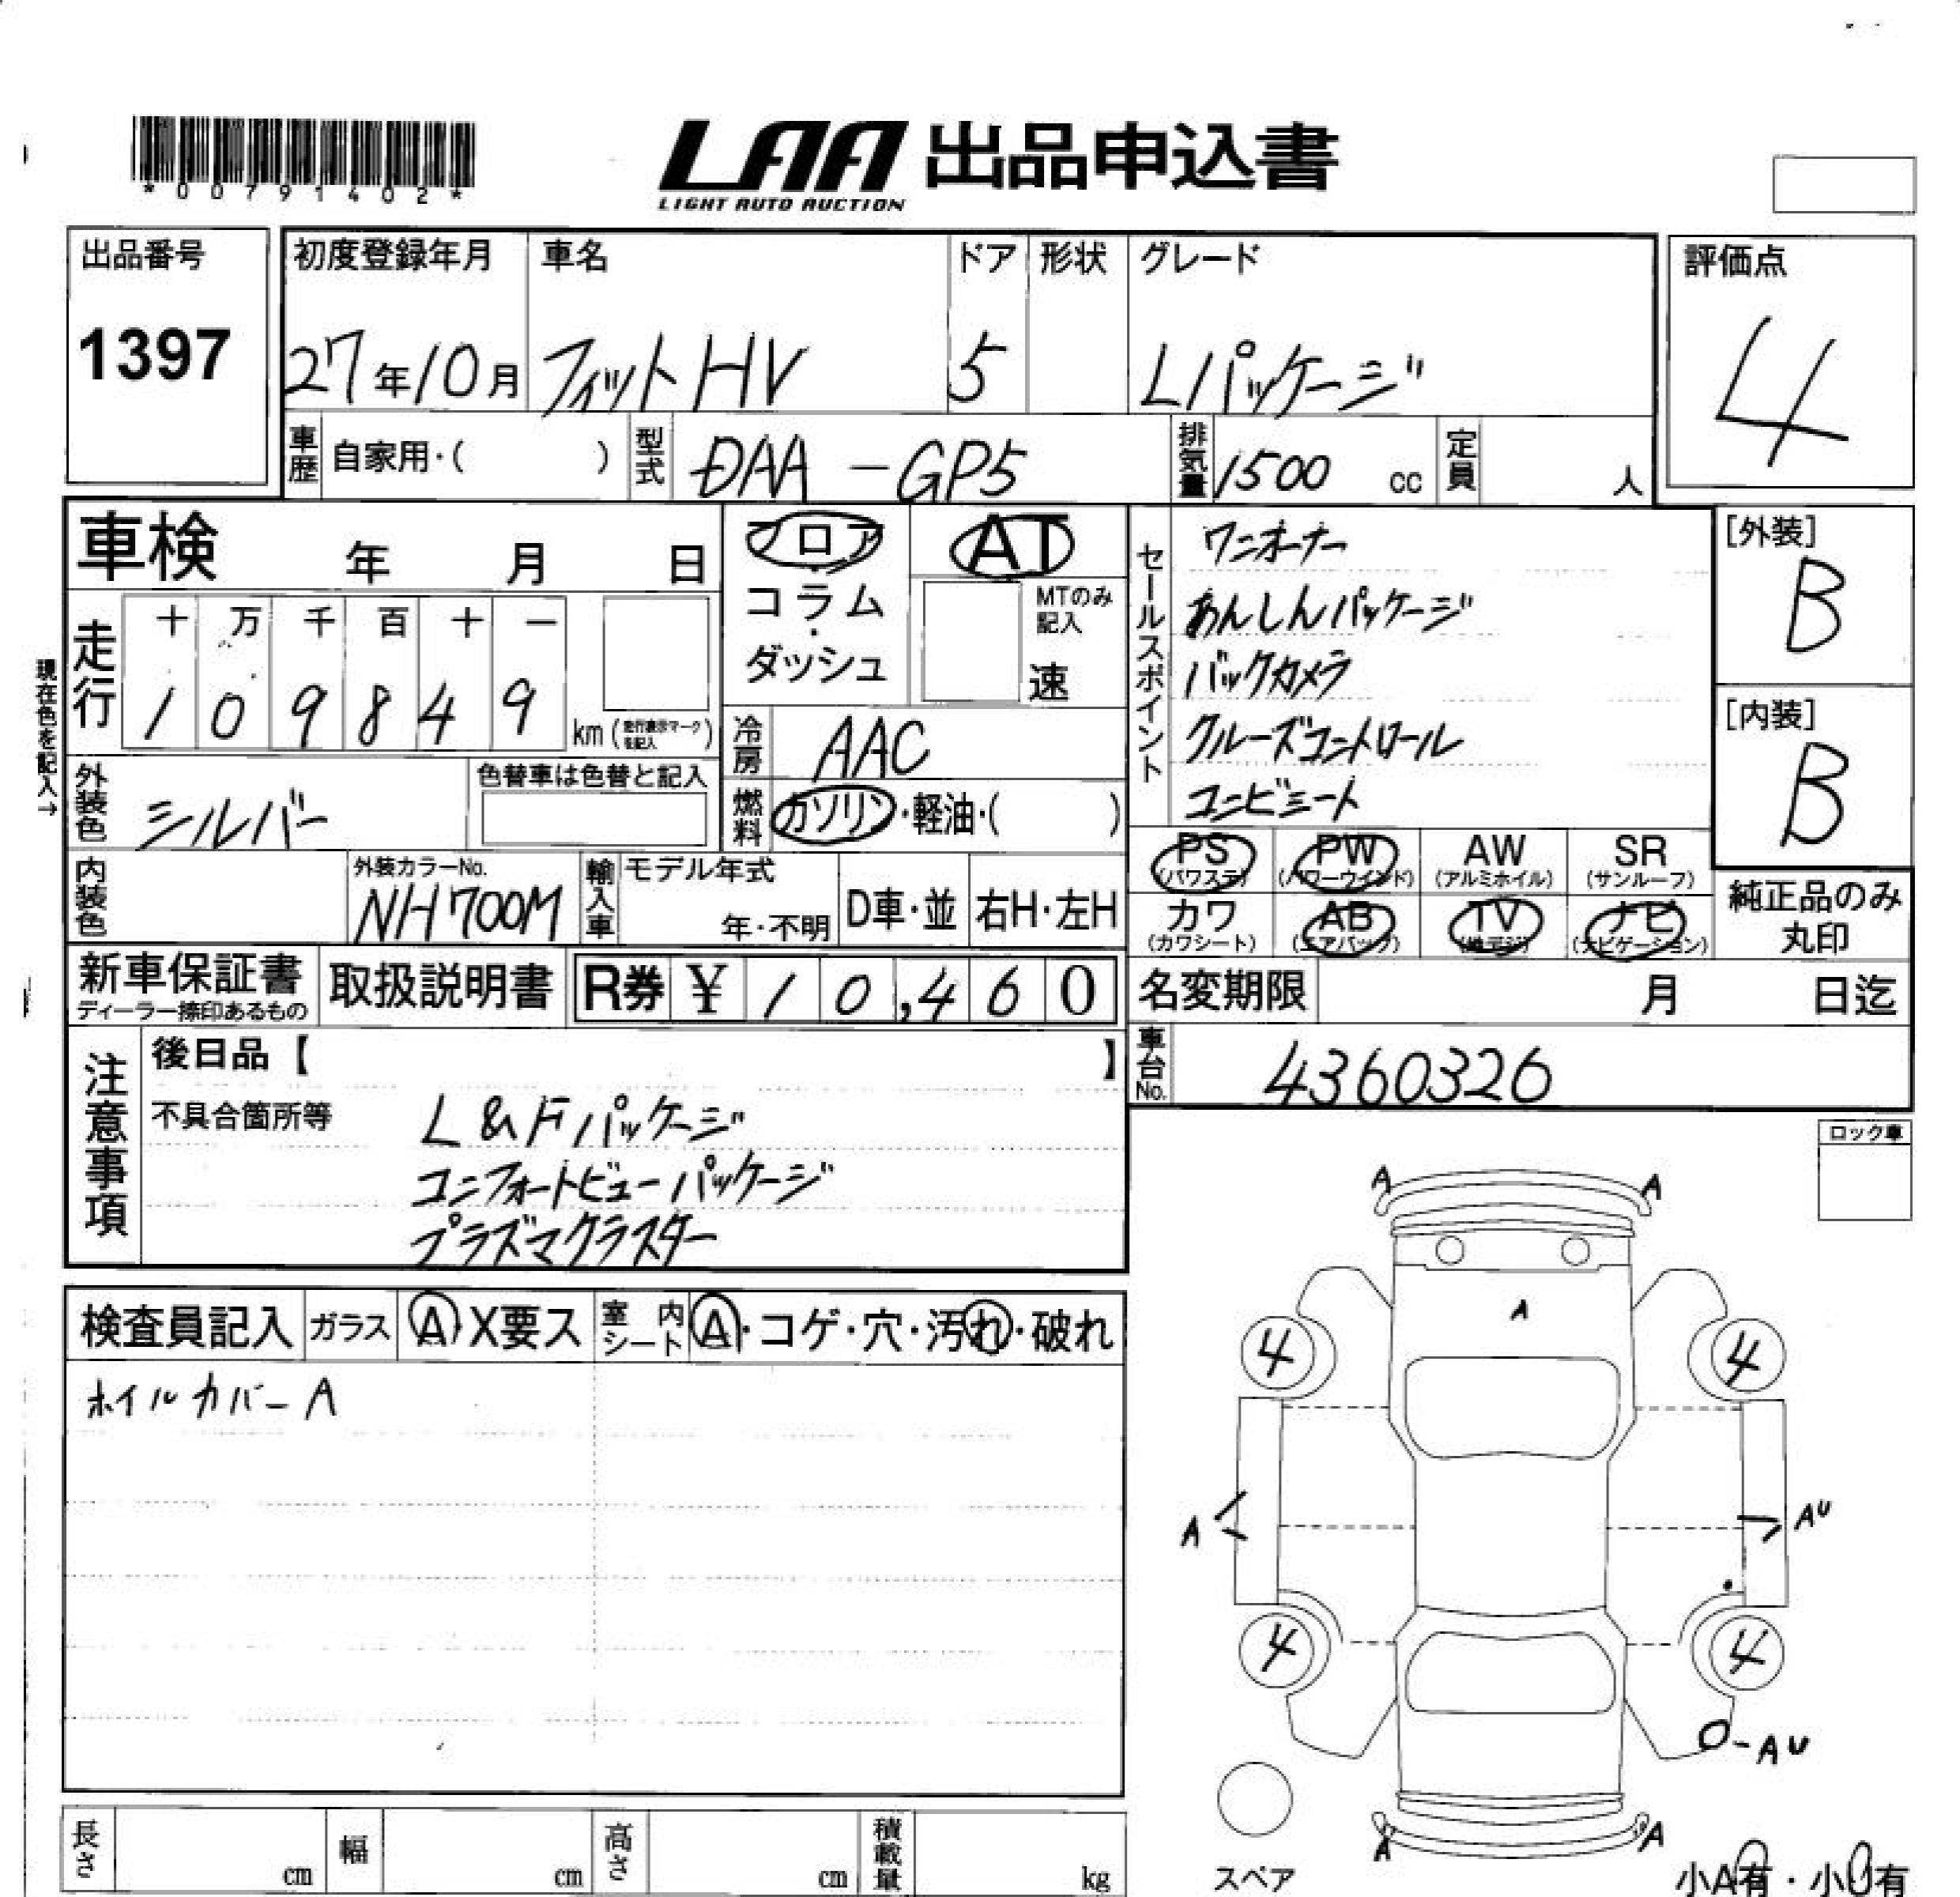 *00791402*
LAA 出品申込書
LIGHT AUTO AUCTION
出品番号
1397
初度登録年月
27年10月
車名
フィットHV
ドア
5
形状
グレード
Lパッケージ
評価点
4
車歴 自家用・( )
型式 DAA-GP5
排気量 1500 cc
定員 人
車検 年 月 日
フロア・コラム・ダッシュ
AT
MTのみ記入
速
セールスポイント
ワンオーナー
あんしんパッケージ
バックカメラ
クルーズコントロール
コンビシート
[外装]
B
[内装]
B
現在色を記入→
走行
十 万 千 百 十 一
1 0 9 8 4 9
km (走行表示マークを記入)
冷房 AAC
燃料 ガソリン・軽油・( )
外装色 シルバー
色替車は色替と記入
内装色
外装カラーNo.
NH700M
輸入車
モデル年式
年・不明
D車・並
右H・左H
PS (パワステ)
PW (パワーウインド)
AW (アルミホイル)
SR (サンルーフ)
カワ (カワシート)
AB (エアバック)
TV (地デジ)
ナビ (ナビゲーション)
純正品のみ丸印
新車保証書
ディーラー捺印あるもの
取扱説明書
R券 ¥ 10,460
名変期限 月 日迄
車台No. 4360326
注意事項
後日品【 】
不具合箇所等
L&Fパッケージ
コンフォートビューパッケージ
プラズマクラスター
ロック車
検査員記入
ガラス A・X要ス
室内シート A・コゲ・穴・汚れ・破れ
ホイルカバーA
A A
A
4 4
A AU
4 4
AU
A A
スペア
小A有・小U有
長さ cm
幅 cm
高さ cm
積載量 kg